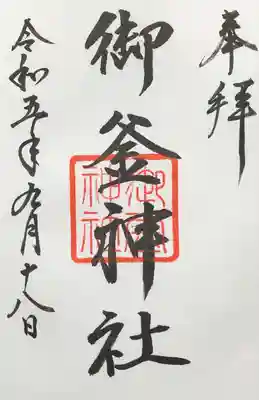 奉拝
御釜神社
御釜神社
令和五年九月十八日